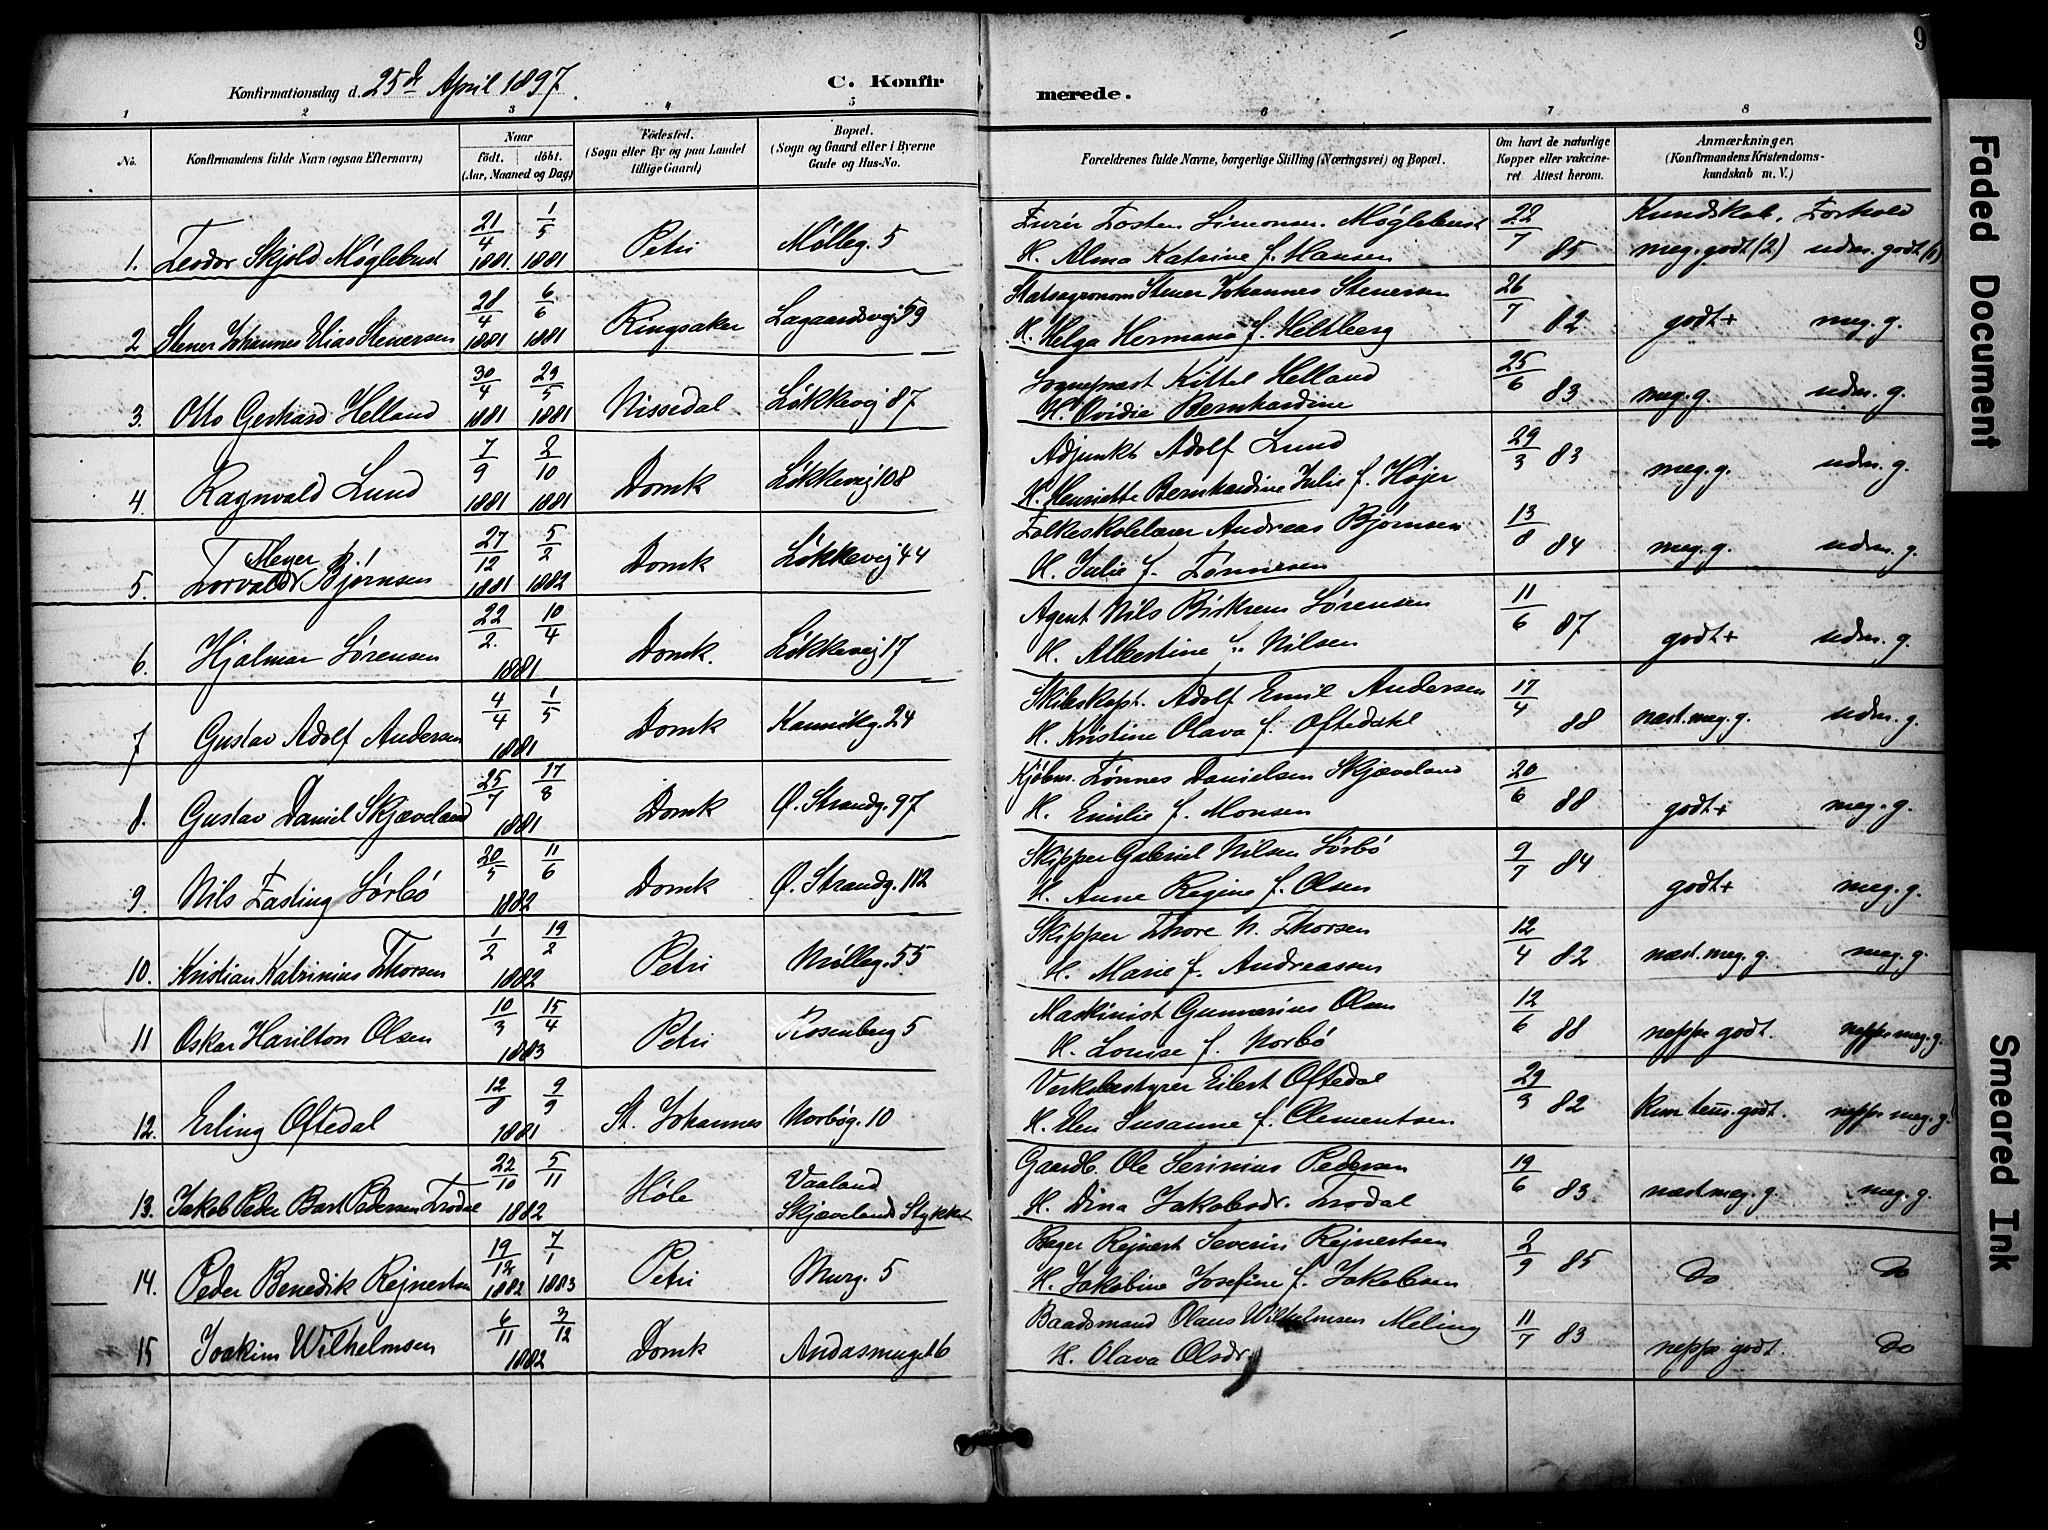 9
Konfirmationsdag d. 25de April 1897.
C. Konfirmerede.
1 2 3 4 5 6 7 8
No.
Konfirmandens fulde Navn (ogsaa Efternavn)
Naar
födt. döbt.
(Aar, Maaned og Dag)
Födested.
(Sogn eller By og paa Landet
tillige Gaard)
Bopæl.
(Sogn og Gaard eller i Byerne
Gade og Hus-No.
Forældrenes fulde Navne, borgerlige Stilling (Næringsvei) og Bopæl.
Om havt de naturlige
Kopper eller vakcine-
ret Attest herom.
Anmærkninger.
(Konfirmandens Kristendoms-
kundskab m. V.)
Kundskab. Forhold
1. Teodor Skjold Møglebust 21/4 1881. 1/5 1881 Petri Mølleg. 5
Simonsen Møglebust 22/7 85 meg. godt (2) udm. godt (1)
H. Alma Katrine f. Hansen
2 Stener Johannes Elias Stenersen 28/4 1881 6/6 1881 Ringsaker Lagaardsvej 59
Statsagronom Stener Johannes Stenersen 26/7 82 godt+ meg. g.
H. Helga Hermana f. Heltberg
3. Otto Gerhard Helland 30/4 1881 29/5 1881 Nissedal Løkkevej 87
Sogneprest Kittel Helland 25/6 83 meg. g. udm. g.
H. Ovidie Bernhardine
4. Ragnvald Lund 7/9 1881 2/10 1881 Domk Løkkevej 108
Adjunkt Adolf Lund 29/3 83 meg. g. udm. g.
H. Henriette Bernhardine Julie f. Højer
5. Torvald Meyer Bjørnsen 27/12 1881 5/2 1882 Domk Løkkevej 44
Folkeskolelærer Andreas Bjørnsen 13/8 84 meg. g. udm. g.
H. Julie f. Tønnesen
6. Hjalmar Sørensen 22/2. 10/4 1881 Domk. Løkkevej 17
Agent Nils Birkrem Sørensen 11/6 87 godt+ udm. g.
H. Albertine " Nilsen
7 Gustav Adolf Andersen 4/4 1/5 1881 Domk Kannikg. 24
Skibskapt. Adolf Emil Andersen 17/4 88 næst. meg. g. udm. g.
H. Kristine Olava f. Oftedahl
8. Gustav Daniel Skjæveland 25/7 17/8 1881 Domk Ø. Strandg. 97
Kjøbm. Tønnes Danielsen Skjæveland 20/6 88 godt+ meg. g.
H. Emilie f. Monsen
9. Nils Fasting Sørbö 20/5 11/6 1882 Domk Ø. Strandg. 112
Skipper Gabriel Nilsen Sørbö 9/7 84 godt+ meg. g.
H. Anne Regine f. Olsen
10. Kristian Katrinius Thorsen 1/2 19/2 1882 Petri Mølleg. 55
Skipper Thore N. Thorsen 12/4 82 næst. meg. g. meg. g.
H. Marie f. Andreassen
11 Oskar Harilton Olsen 10/3 15/4 1883 Petri Rosenberg 5
Maskinist Gunnerius Olsen 12/6 88 neppe godt. neppe meg. g.
H. Louise f. Norbö
12. Erling Oftedal 12/8 9/9 1881 St. Johannes Norbøg. 10
Verksbestyrer Eilert Oftedal 29/3 82 kun tem. godt. neppe meg. g.
H. Elen Susanne f. Clementsen
13. Jakob Peder Bart Pedersen Frodal 22/10 5/11 1882 Høle Vaaland
Skjævelands Stykket
Gaardb. Ole Serinius Pedersen 19/6 83 næst meg. g. meg. g.
H. Dina Jakobsdr. Frodal
14. Peder Benedik Rejnertsen 19/12 1882 7/1 1883 Petri Murg. 5
Bager Rejnert Severin Rejnertsen 2/9 85 do do
H. Jakobine Josefine f. Jakobsen
15 Joakim Wilhelmsen 6/11 3/12 1882 Domk Andasmuget 6
Baadsmand Olaus Wilhelmsen Meling 11/7 83 neppe godt. do
H. Olava Olsdr.
Faded Document
Smeared Ink